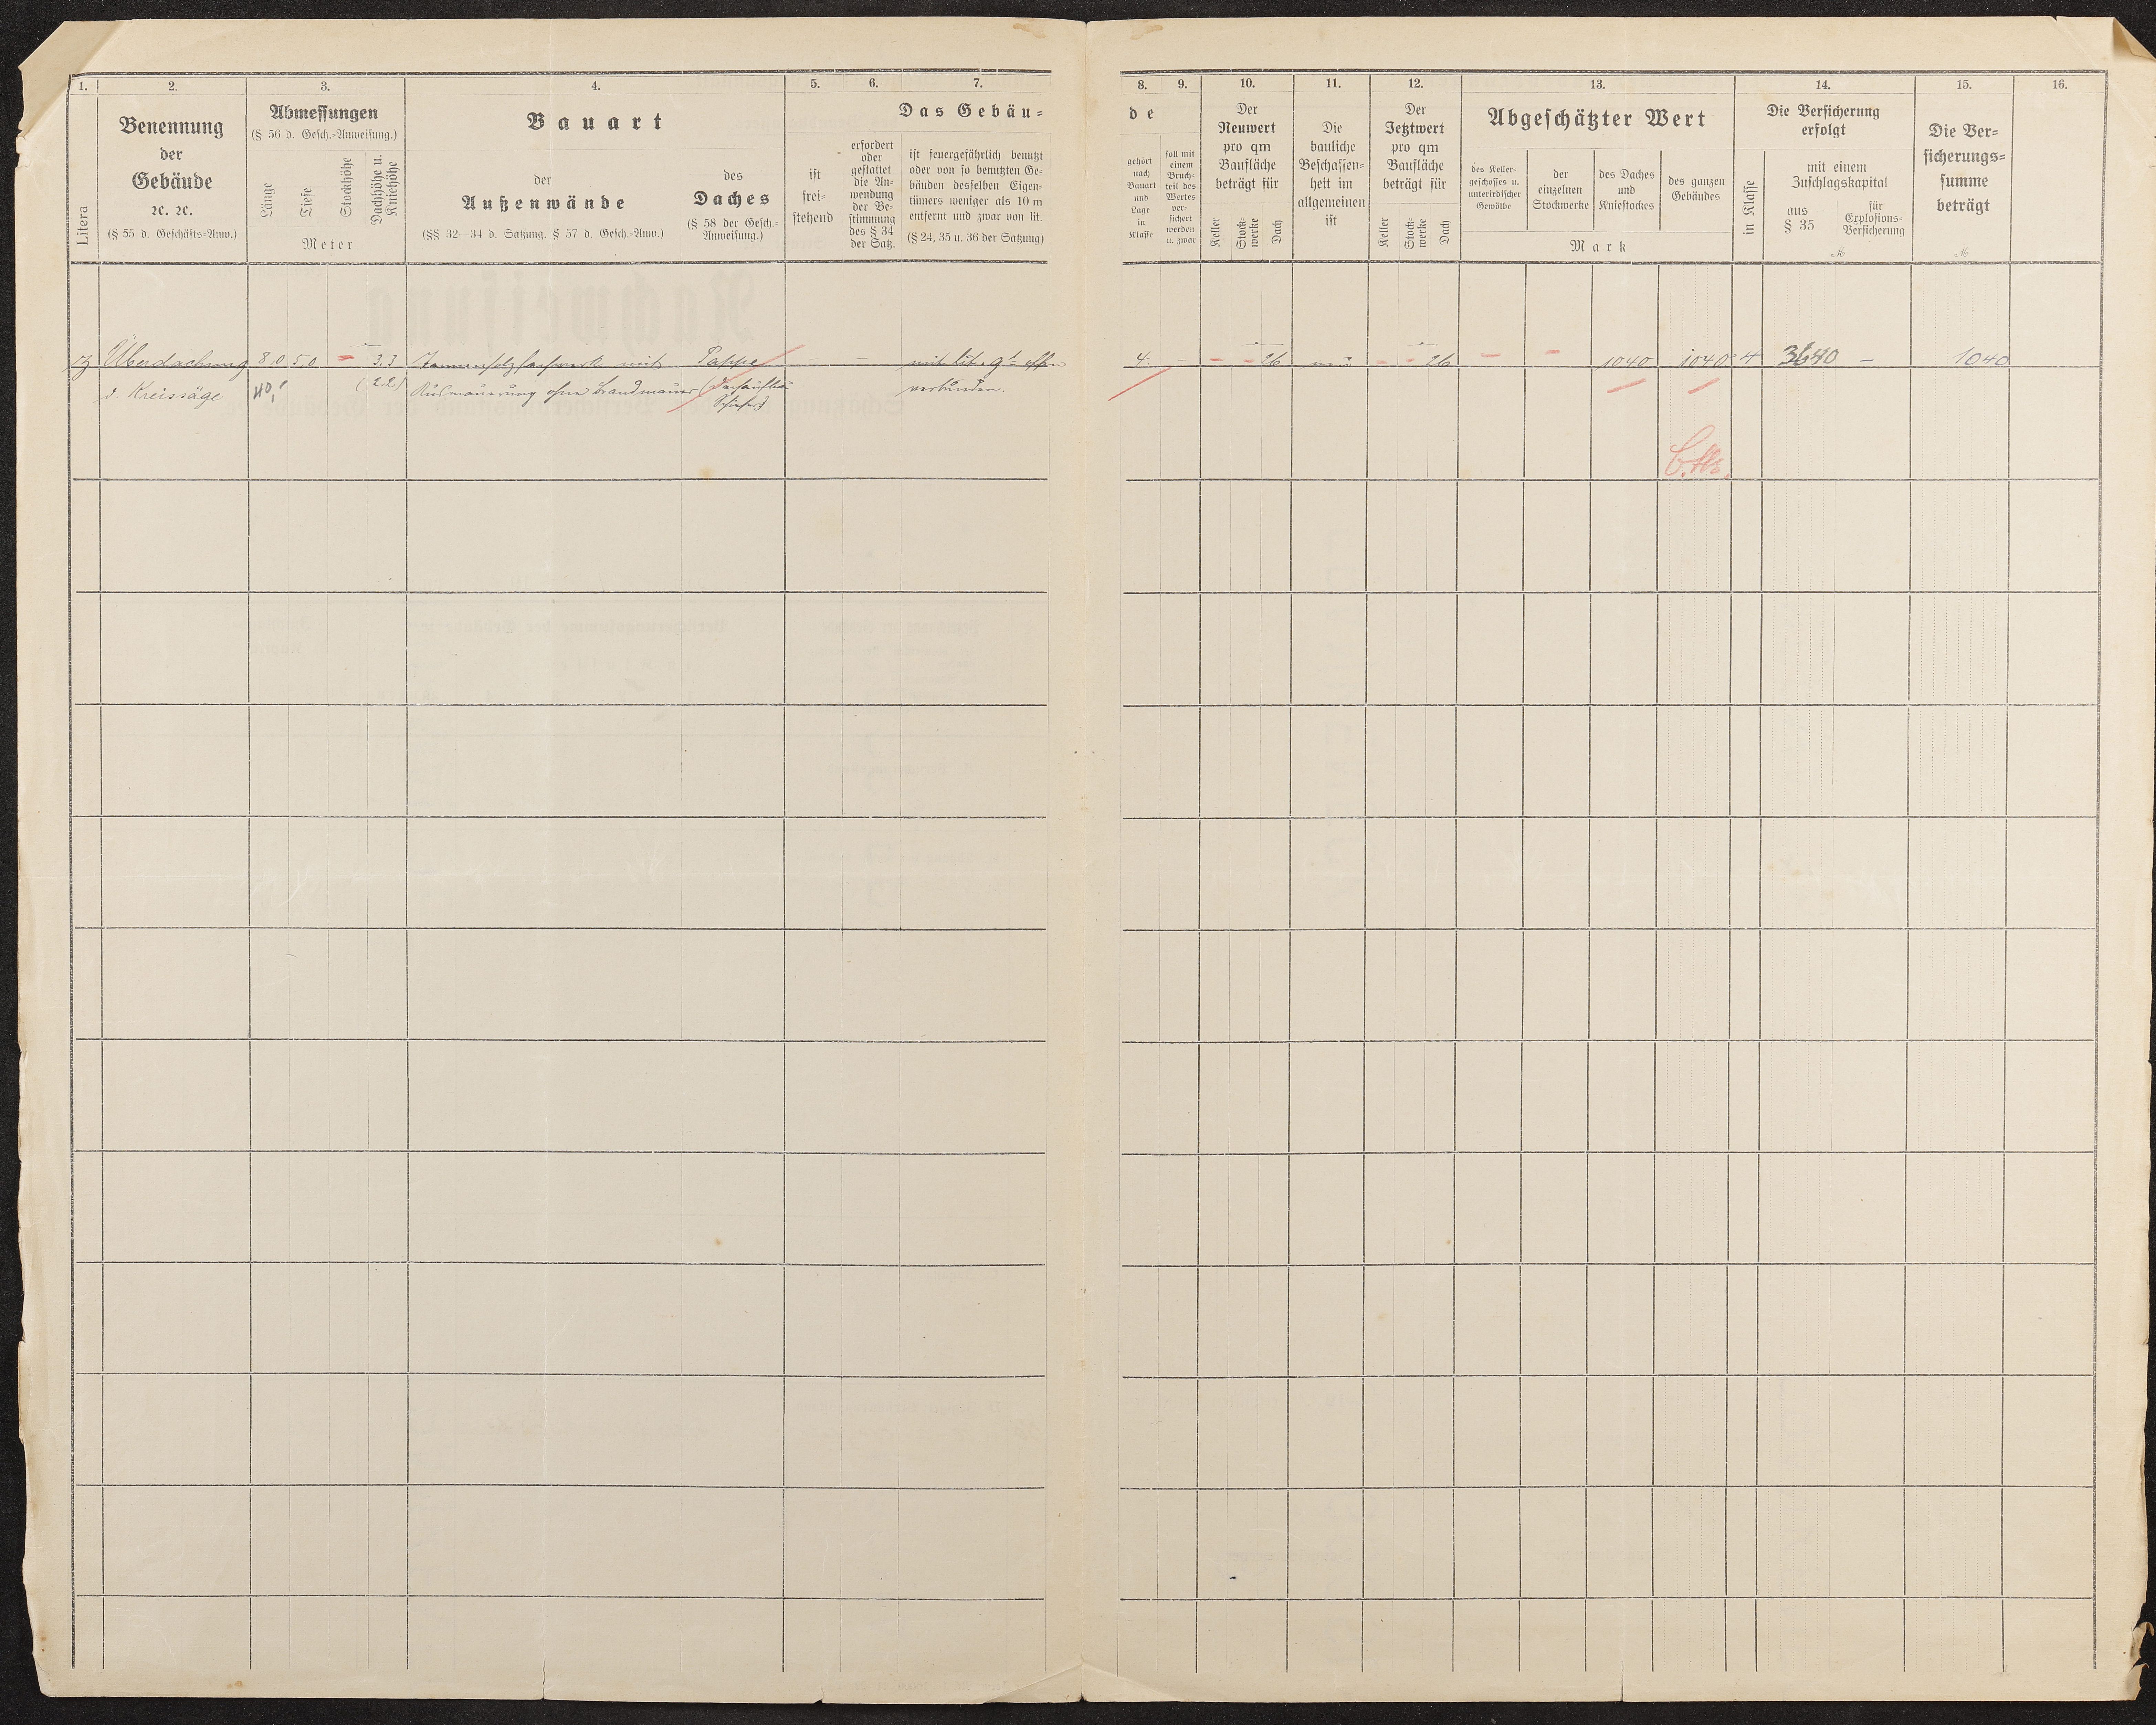 1.
Litera
2.
Benennung
der
Gebäude
ꝛc. ꝛc.
(§ 55 d. Geschäfts-Anw.)
3.
Abmessungen
(§ 56 d. Gesch.-Anweisung.)
Länge
Tiefe
Stockhöhe
Dachhöhe u.
Kniehöhe
Meter
4.
Bauart
der
Außenwände
(§§ 32—34 d. Satzung. § 57 d. Gesch.-Anw.)
des
Daches
(§ 58 der Gesch.-
Anweisung.)
5.
ist
frei-
stehend
6.
erfordert
oder
gestattet
die An-
wendung
der Be-
stimmung
des § 34
der Satz.
7.
Das Gebäu-
ist feuergefährlich benutzt
oder von so benutzten Ge-
bäuden desselben Eigen-
tümers weniger als 10 m
entfernt und zwar von lit.
(§ 24, 35 u. 36 der Satzung)
8.
de
gehört
nach
Bauart
und
Lage
in
Klasse
9.
soll mit
einem
Bruch-
teil des
Wertes
ver-
sichert
werden
u. zwar
10.
Der
Neuwert
pro qm
Baufläche
beträgt für
Keller
Stock-
werke
Dach
11.
Die
bauliche
Beschaffen-
heit im
allgemeinen
ist
12.
Der
Jetztwert
pro qm
Baufläche
beträgt für
Keller
Stock-
werke
Dach
13.
Abgeschätzter Wert
des Keller-
geschosses u.
unterirdischer
Gewölbe
der
einzelnen
Stockwerke
des Daches
und
Kniestockes
des ganzen
Gebäudes
Mark
14.
Die Versicherung
erfolgt
in Klasse
mit einem
Zuschlagskapital
aus
§ 35
für
Explosions-
Versicherung
M
15.
Die Ver-
sicherungs-
summe
beträgt
M
16.
Überdachung 8,0 5,0 - 3,3 Tannenholzfachwerk mit Pappe — — mit lit. g offen 4. — - - 26 neu - - 26 - - 1040 1040 4 3640 — 1040
d. Kreissäge 40, (2,2) Ausmauerung ohne Brandmauer (Dachaufbau verbunden.
Schiefer)